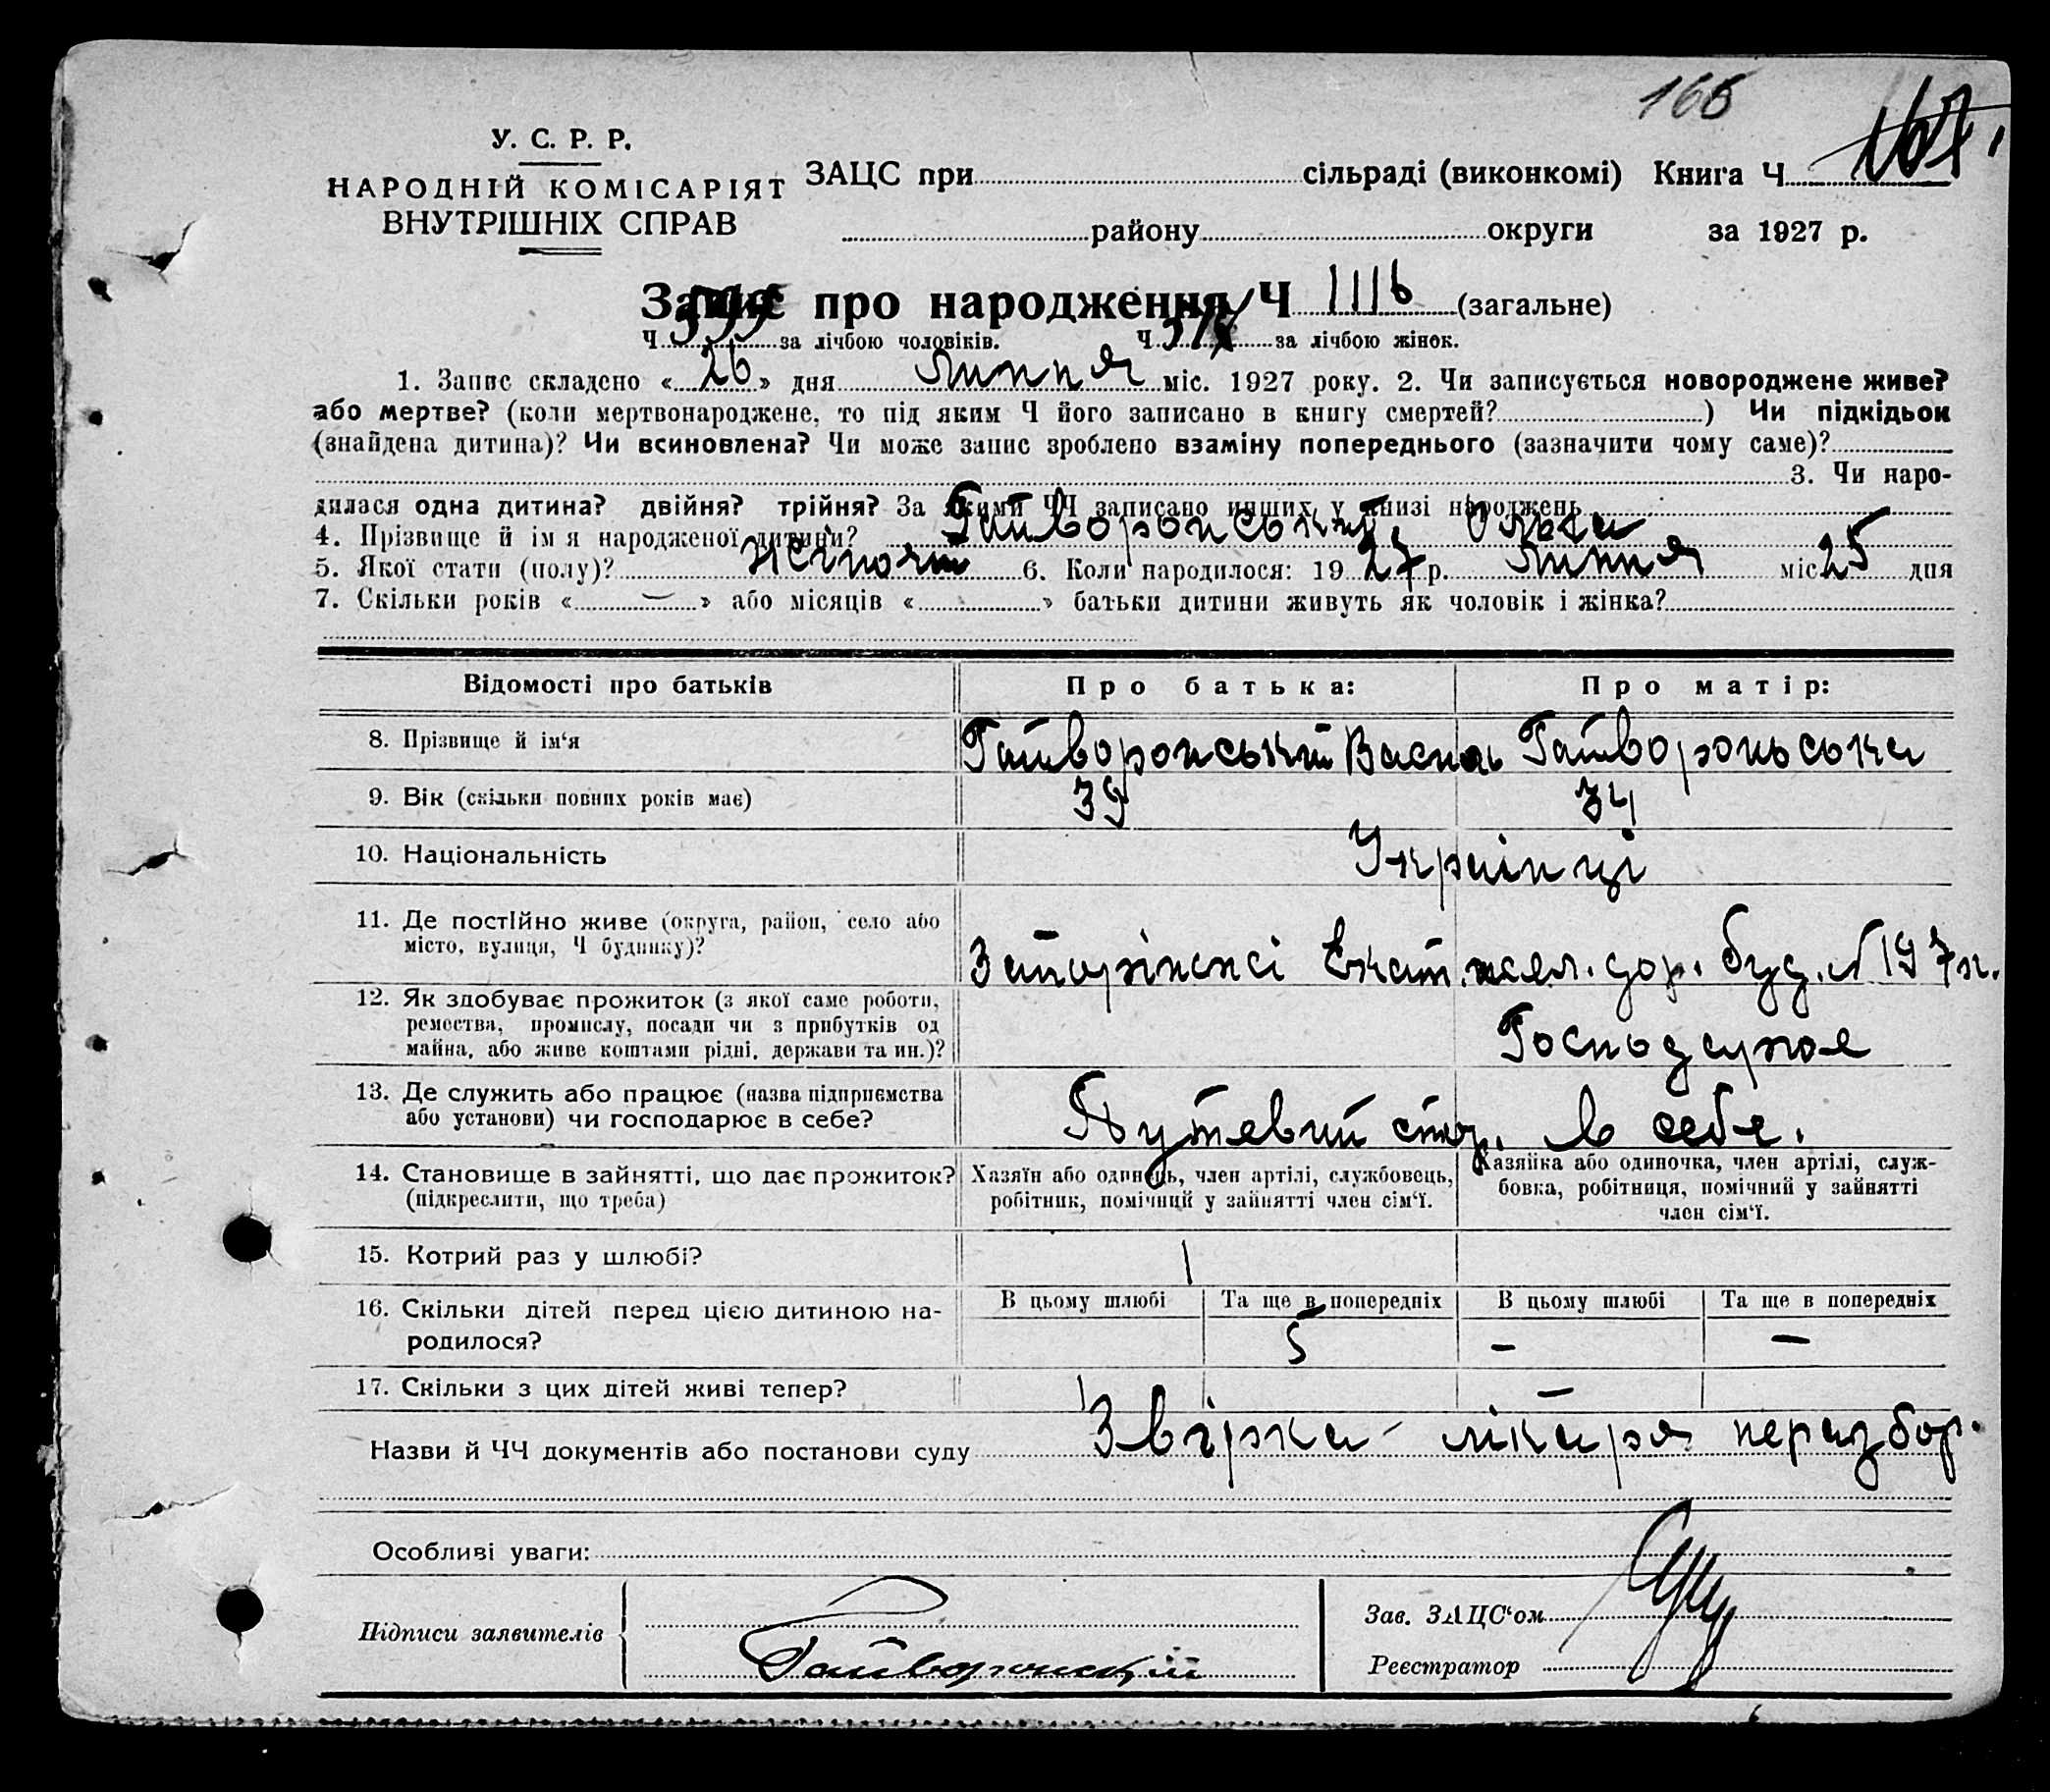 166
У. С. Р. Р.
НАРОДНІЙ КОМІСАРІЯТ
ВНУТРІШНІХ СПРАВ
ЗАЦС при сільраді (виконкомі) Книга Ч 167
району округи за 1927 р.
Запис про народження Ч 1116 (загальне)
Ч за лічбою чоловіків. Ч за лічбою жінок.
1. Запис складено « 26 » дня Липня міс. 1927 року. 2. Чи записується новороджене живе?
або мертве? (коли мертвонароджене, то під яким Ч його записано в книгу смертей? ) Чи підкідьок
(знайдена дитина)? Чи всиновлена? Чи може запис зроблено взаміну попереднього (зазначити чому саме)?
3. Чи наро-
дилася одна дитина? двійня? трійня? За якими ЧЧ записано инших у книзі народжень
4. Прізвище й ім я народженої дитини?
5. Якої стати (полу)? 6. Коли народилося: 19 27 р. Липня міс 25 дня
7. Скільки років « — » або місяців « » батьки дитини живуть як чоловік і жінка?
Відомості про батьків Про батька: Про матір:
8. Прізвище й ім‘я Гайворонський Василь Гайвороньська
9. Вік (скільки повних років має) 39 34
10. Національність Українці
11. Де постійно живе (округа, район, село або
місто, вулиця, Ч будинку)?
Запоріжжі Екат. жел. дор. буд. № 197 к.
12. Як здобуває прожиток (з якої саме роботи,
ремества, промислу, посади чи з прибутків од
майна, або живе коштами рідні, держави та ин.)?
Господарює
13. Де служить або працює (назва підприємства
або установи) чи господарює в себе?
Путевий стор. в себе.
14. Становище в зайнятті, що дає прожиток?
(підкреслити, що треба)
Хазяїн або одинець, член артілі, службовець,
робітник, помічний у зайнятті член сім‘ї.
Хазяйка або одиночка, член артілі, служ-
бовка, робітниця, помічний у зайнятті
член сім‘ї.
15. Котрий раз у шлюбі? 1
16. Скільки дітей перед цією дитиною на-
родилося?
В цьому шлюбі Та ще в попередніх В цьому шлюбі Та ще в попередніх
5 — —
17. Скільки з цих дітей живі тепер? 1 —
Назви й ЧЧ документів або постанови суду Звірка лікаря неразбор.
Особливі уваги:
Підписи заявителів Гайворонский
Зав. ЗАЦС‘ом
Реєстратор